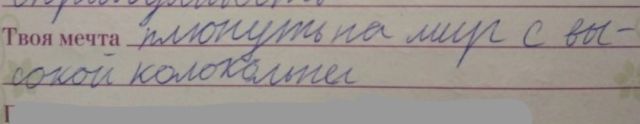 Твоя мечта плюнуть на мир с вы-
сокой колокольни